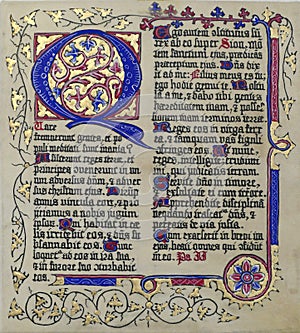 Quare
fremuerunt gentes, et po
puli meditati sunt inania?
Astiterunt reges terræ, et
principes convenerunt in un
um adversus dñm, et adver
sus christum ejus.
eorum, et pro
jiciamus a nobis jugum
ipsorum. Qui habitat in cæ
lis irridebit eos, et dñs sub
sannabit eos. Tunc
loquetur ad eos in ira sua,
et in furore suo conturbabit
eos.
Ego autem
rex ab eo super Sion, mon
tem sanctum ejus, prædicans
præceptum ejus. Dñs dix
it ad me: Filius meus es tu;
ego hodie genui te.
a me, et dabo tibi gentes
hæreditatem tuam, et
tuam terminos terræ.
Reges eos in virga ferr
ea, et tamquam vas figuli
confringes eos. Et nunc
reges, intelligite; erudimi
ni, qui judicatis terram.
Servite dño in timore,
et exultate ei cum tremore.
Apprehendite disciplinam
nequando irascatur dñs,
et pereatis de via justa.
Cum exarserit in brevi ira
ejus, beati omnes qui confidunt
in eo. Ps. II